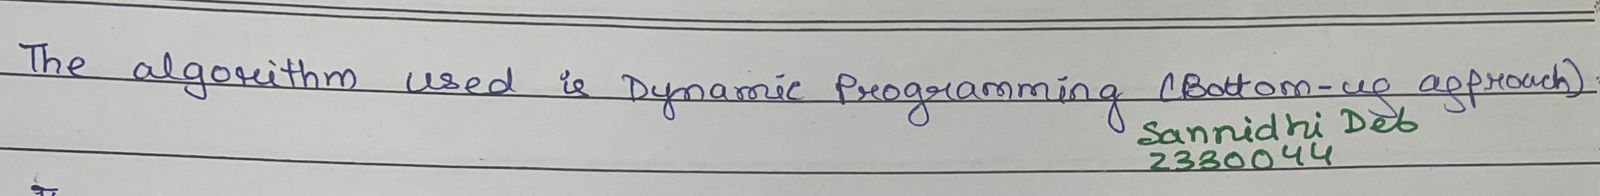 The algorithm used is Dynamic Programming (Bottom-up approach)
Sannidhi Deb
2330044